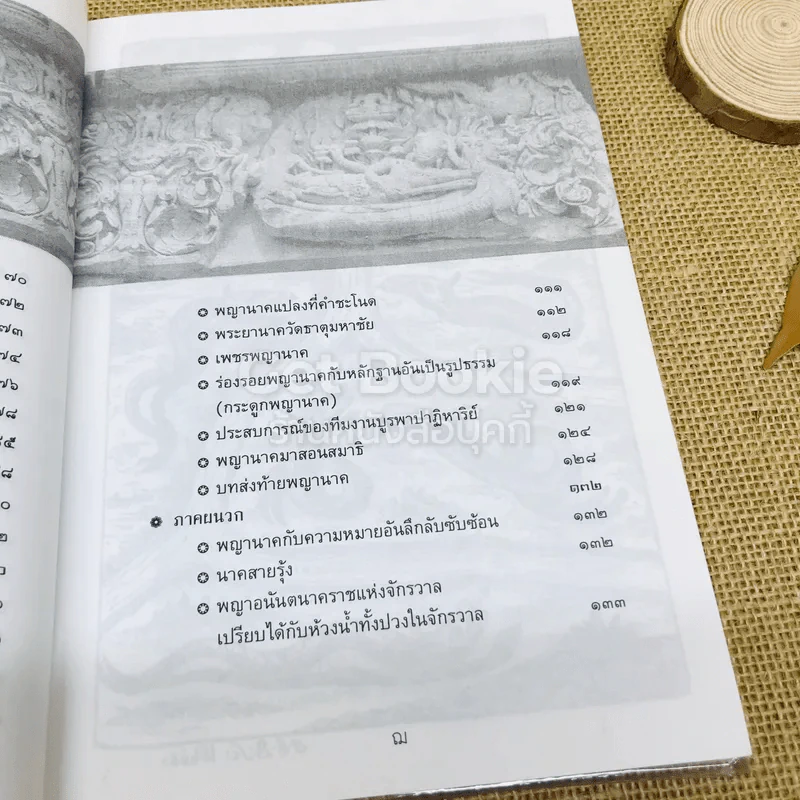 ๗๐
๗๒
๗๓
๗๔
๗๖
๗๘
๘๕
พญานาคแปลงที่คำชะโนด ๑๑๑
พระยานาควัดธาตุมหาชัย ๑๑๒
เพชรพญานาค ๑๑๘
ร่องรอยพญานาคกับหลักฐานอันเป็นรูปธรรม
(กระดูกพญานาค) ๑๑๙
ประสบการณ์ของทีมงานบูรพาปาฏิหาริย์ ๑๒๑
พญานาคมาสอนสมาธิ ๑๒๔
บทส่งท้ายพญานาค ๑๒๘
ภาคผนวก ๑๓๒
พญานาคกับความหมายอันลึกลับซับซ้อน ๑๓๒
นาคสายรุ้ง ๑๓๒
พญาอนันตนาคราชแห่งจักรวาล
เปรียบได้กับห้วงน้ำทั้งปวงในจักรวาล ๑๓๓
ฌ
Get Bookie
ร้านหนังสือบุคกี้